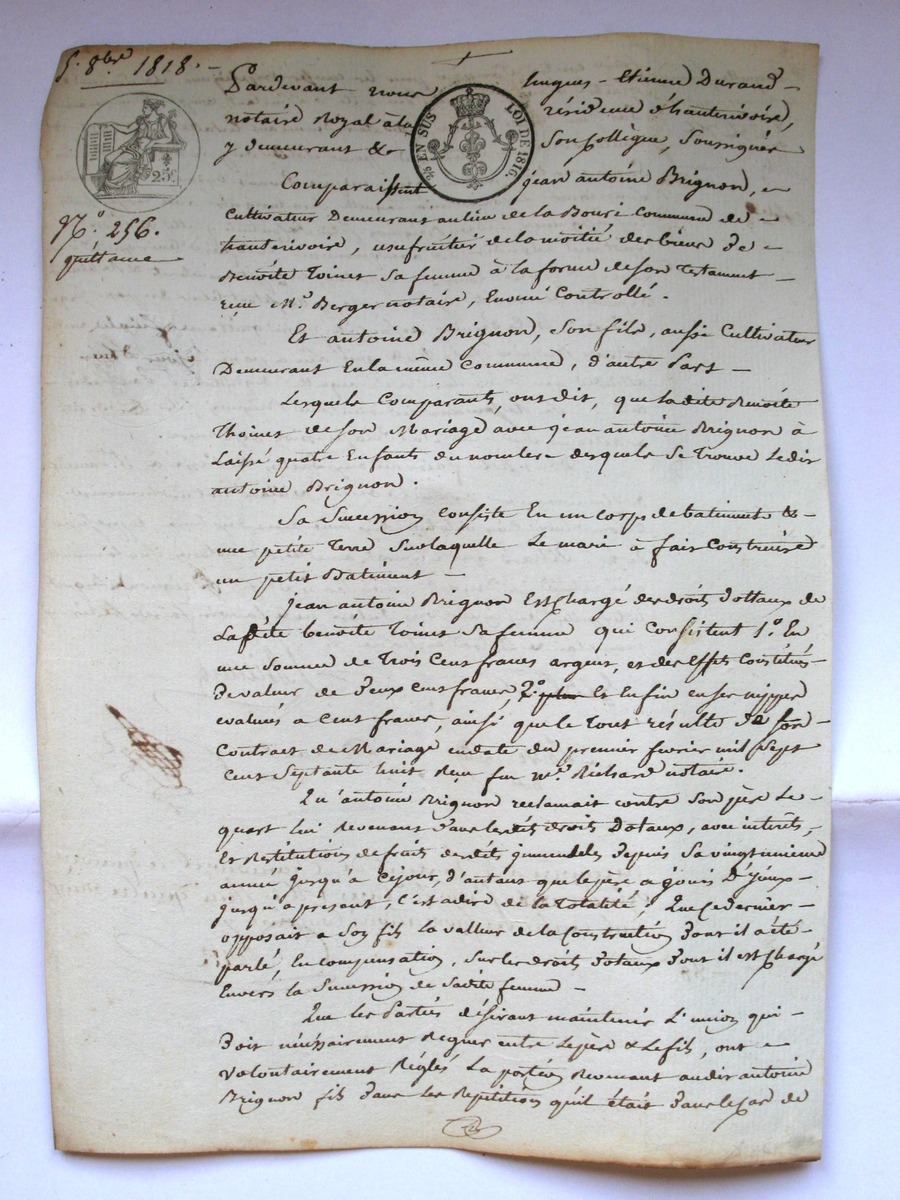 5. 8bre. 1818. -
Pardevant nous hugues - Etienne Durand -
notaire Royal à la résidence d'hauterivoire,
y demeurant & Son Collègue, Soussignés
¼ EN SUS LOI DE 1816.
25c.
Comparaissent jean antoine Brignon,
N.o 256.
quittance
Cultivateur Demeurant au lieu de la Bouri Commune de
hauterivoire, usufruitier de la moitié des biens de
Benoite Toinet Sa femme à la forme de Son Testament -
reçu M.e Berger notaire, Controllé.
Et antoine Brignon, Son fils, aussi Cultivateur
Demeurant En la même Commune, d'autre Part -
Lesquels Comparants, ont dit, que ladite Benoite
Thoinet de son Mariage avec jean antoine Brignon à
Laissé quatre Enfants du nombre desquels Se Trouve Ledit
antoine Brignon.
Sa Succession Consiste En un Corps de batiments &
une petite Terre Sur laquelle Le mari à fait Construire
un petit Batiment -
jean antoine Brignon Est Chargé des droits Dottaux de
Ladite benoite Toinet Sa femme qui Consistent 1.o En
une Somme de Trois Cent francs argent, et des Effets Constitués
De valeur de Deux cent francs, 2.o plus Et Enfin en ses nippes
evalués a Cent francs, ainsi que le Tout résulte de son
Contract de Mariage en date du premier fevrier mil Sept
Cent Septante huit Reçu feu M.e Richard notaire.
Qu'antoine Brignon reclamait contre Son père Le
quart lui Revenant dans lesdits droits Dotaux, avec interêts,
Et Restitution de fruits desdits immeubles depuis Sa vingtunieme
année jusqu'à Cejour, d'autant que le père a joui D'yceux
jusqu'a present, C'est adire de la Totalité, Que Ce dernier -
opposait a Son fils la valleur de la Construction Dont il a été
parlé, En Compensation, Sur les droits Dotaux Dont il est Chargé
Envers la Succession de Sadite femme -
Que les Partiés désirant maintenir L'union qui -
Doit nécessairement Regner entre Le père & Le fils, ont
volontairement Réglés La potion Revenant audit antoine
Brignon fils Dans les Repetitions qu'il était Dans le Cas de